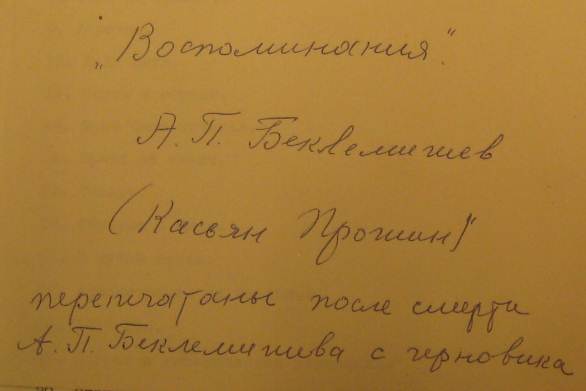 „Воспоминания".
А. П. Беклемишев
(Касьян Прошин)"
перепечатаны после смерти
А. П. Беклемишева с черновика